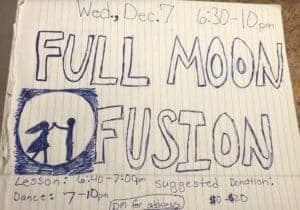 Wed., Dec. 7 6:30-10pm
FULL MOON
FUSION
Lesson: 6:40-7:00pm suggested Donation:
Dance: 7-10pm (DM for address) $0-$20